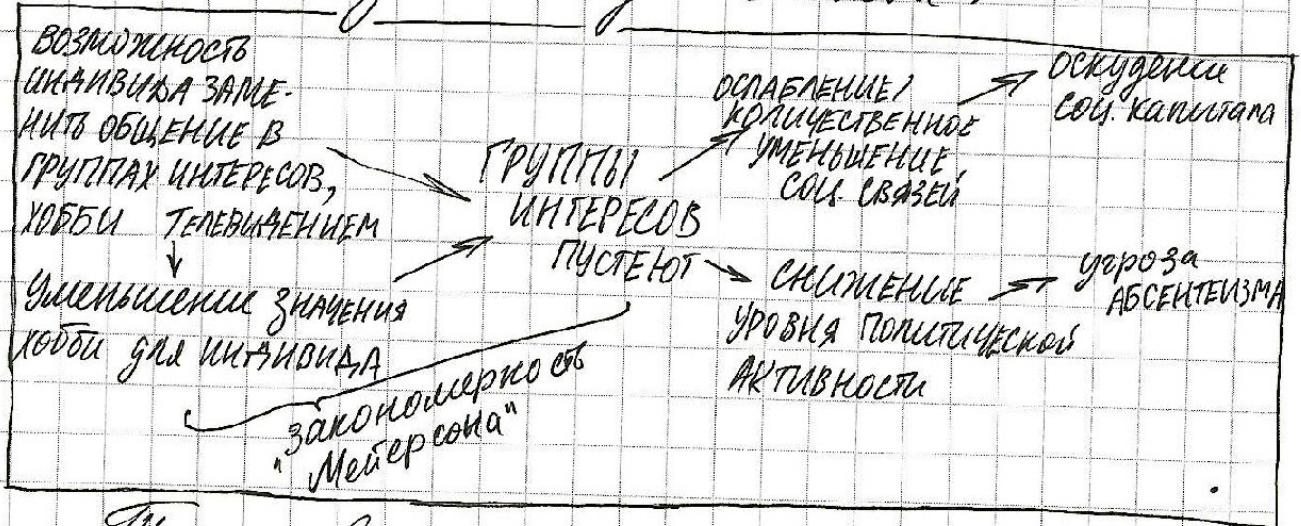 ВОЗМОЖНОСТЬ
ИНДИВИДА ЗАМЕ-
НИТЬ ОБЩЕНИЕ В
ГРУППАХ ИНТЕРЕСОВ,
ХОББИ ТЕЛЕВИДЕНИЕМ
Уменьшение значения
хобби для индивида
ГРУППЫ
ИНТЕРЕСОВ
ПУСТЕЮТ
"Закономерность
Мейерсона"
ОСЛАБЛЕНИЕ/
КОЛИЧЕСТВЕННОЕ
УМЕНЬШЕНИЕ
СОЦ. СВЯЗЕЙ
оскудение
соц. капитала
СНИЖЕНИЕ
УРОВНЯ ПОЛИТИЧЕСКОЙ
АКТИВНОСТИ
угроза
АБСЕНТЕИЗМА